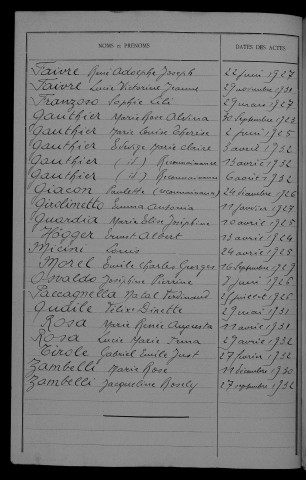 NOMS et PRÉNOMS DATES DES ACTES
Faivre René Adolphe Joseph 22 juin 1927
Faivre Lucie Victorine Jeanne 29 novembre 1931
Franzoso Sophie Lili 29 mars 1927
Gauthier Marie Rose 30 septembre 1923
Gauthier Marie Louise 2 juin 1925
Gauthier Edwige Marie Claire 3 avril 1932
Gauthier (id) Reconnaissance 13 avril 1932
Gauthier (id) Reconnaissance 6 août 1932
Giacon Paulette (reconnaissance) 24 décembre 1926
Girolimetto Emma Antonia 11 février 1927
Guardia Marie Elise Joséphine 10 avril 1925
Högger Ernest Albert 13 avril 1924
Micini Louis 24 avril 1925
Morel Emile Charles Georges 16 septembre 1929
Osvaldo Joséphine Pierrine 7 juin 1926
Paccagnella Natal Ferdinand 25 juillet 1926
Qudile Félix Ginette 29 mai 1931
Rosa Marie Renée Augusta 11 avril 1931
Rosa Lucie Marie Irma 29 avril 1932
Tirole Gabriel Emile Just 27 février 1932
Zambelli Marie Rose 11 décembre 1930
Zambelli Jacqueline Rosely 27 septembre 1932